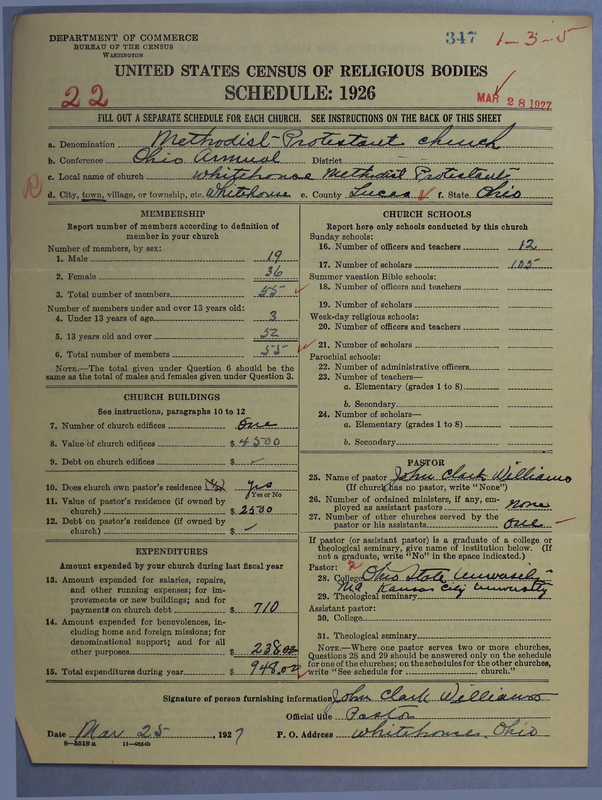 DEPARTMENT OF COMMERCE
BUREAU OF THE CENSUS
WASHINGTON
347 1-3-5
UNITED STATES CENSUS OF RELIGIOUS BODIES
SCHEDULE: 1926
22
MAR 28 1927
FILL OUT A SEPARATE SCHEDULE FOR EACH CHURCH. SEE INSTRUCTIONS ON THE BACK OF THIS SHEET
a. Denomination Methodist-Protestant church
b. Conference Ohio Annual District
c. Local name of church Whitehouse Methodist Protestant
d. City, town, village, or township, etc. Whitehouse e. County Lucas f. State Ohio
MEMBERSHIP
Report number of members according to definition of
member in your church
Number of members, by sex:
1. Male 19
2. Female 36
3. Total number of members 55
Number of members under and over 13 years old:
4. Under 13 years of age 3
5. 13 years old and over 52
6. Total number of members 55
NOTE.—The total given under Question 6 should be the
same as the total of males and females given under Question 3.
CHURCH BUILDINGS
See instructions, paragraphs 10 to 12
7. Number of church edifices one
8. Value of church edifices $ 4500
9. Debt on church edifices $ -
10. Does church own pastor's residence yes
Yes or No
11. Value of pastor's residence (if owned by
church) $ 2500
12. Debt on pastor's residence (if owned by
church) $ -
EXPENDITURES
Amount expended by your church during last fiscal year
13. Amount expended for salaries, repairs,
and other running expenses; for im-
provements or new buildings; and for
payments on church debt $ 710
14. Amount expended for benevolences, in-
cluding home and foreign missions; for
denominational support; and for all
other purposes $ 238.02
15. Total expenditures during year $ 948.02
CHURCH SCHOOLS
Report here only schools conducted by this church
Sunday schools:
16. Number of officers and teachers 12
17. Number of scholars 105
Summer vacation Bible schools:
18. Number of officers and teachers
19. Number of scholars
Week-day religious schools:
20. Number of officers and teachers
21. Number of scholars
Parochial schools:
22. Number of administrative officers
23. Number of teachers—
a. Elementary (grades 1 to 8)
b. Secondary
24. Number of scholars—
a. Elementary (grades 1 to 8)
b. Secondary
PASTOR
25. Name of pastor John Clark Williams
(If church has no pastor, write "None")
26. Number of ordained ministers, if any, em-
ployed as assistant pastors none
27. Number of other churches served by the
pastor or his assistants one
If pastor (or assistant pastor) is a graduate of a college or
theological seminary, give name of institution below. (If
not a graduate, write "No" in the space indicated.)
Pastor: 2
28. College Ohio State University
Kansas City University
29. Theological seminary
Assistant pastor:
30. College
31. Theological seminary
NOTE.—Where one pastor serves two or more churches,
Questions 28 and 29 should be answered only on the schedule
for one of the churches; on the schedules for the other churches,
write "See schedule for church."
Signature of person furnishing information John Clark Williams
Official title Pastor
Date Mar 25, 1927 P. O. Address Whitehouse, Ohio
8-5518 a